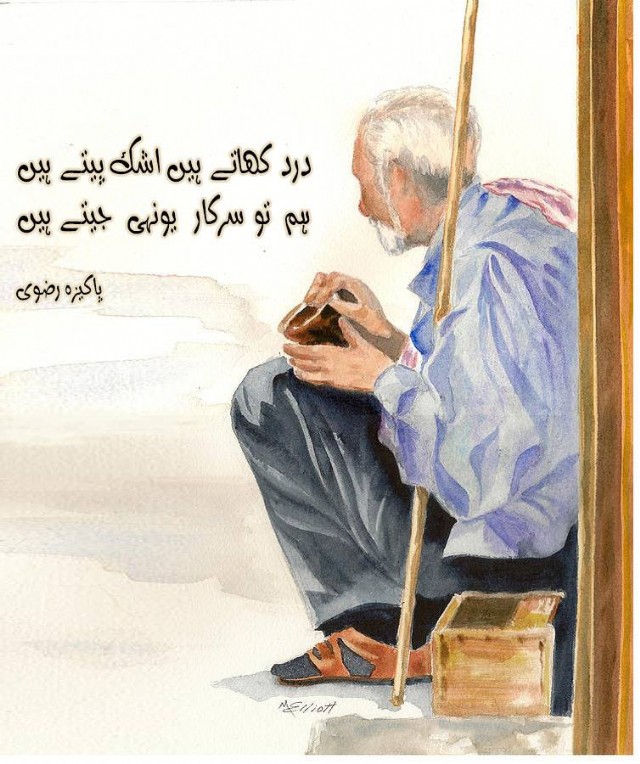 درد کھاتے ہیں اشک پیتے ہیں
ہم تو سرکار یونہی جیتے ہیں
پاکیزہ رضوی
McElliott